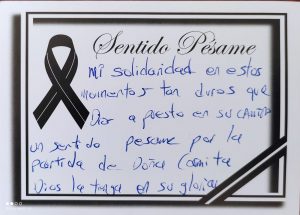 Sentido Pésame
Mi solidaridad en estos
momentos tan duros que
Dios a puesto en su camino
un sentido pesame por la
partida de Doña Carmita
Dios la tenga en su gloria